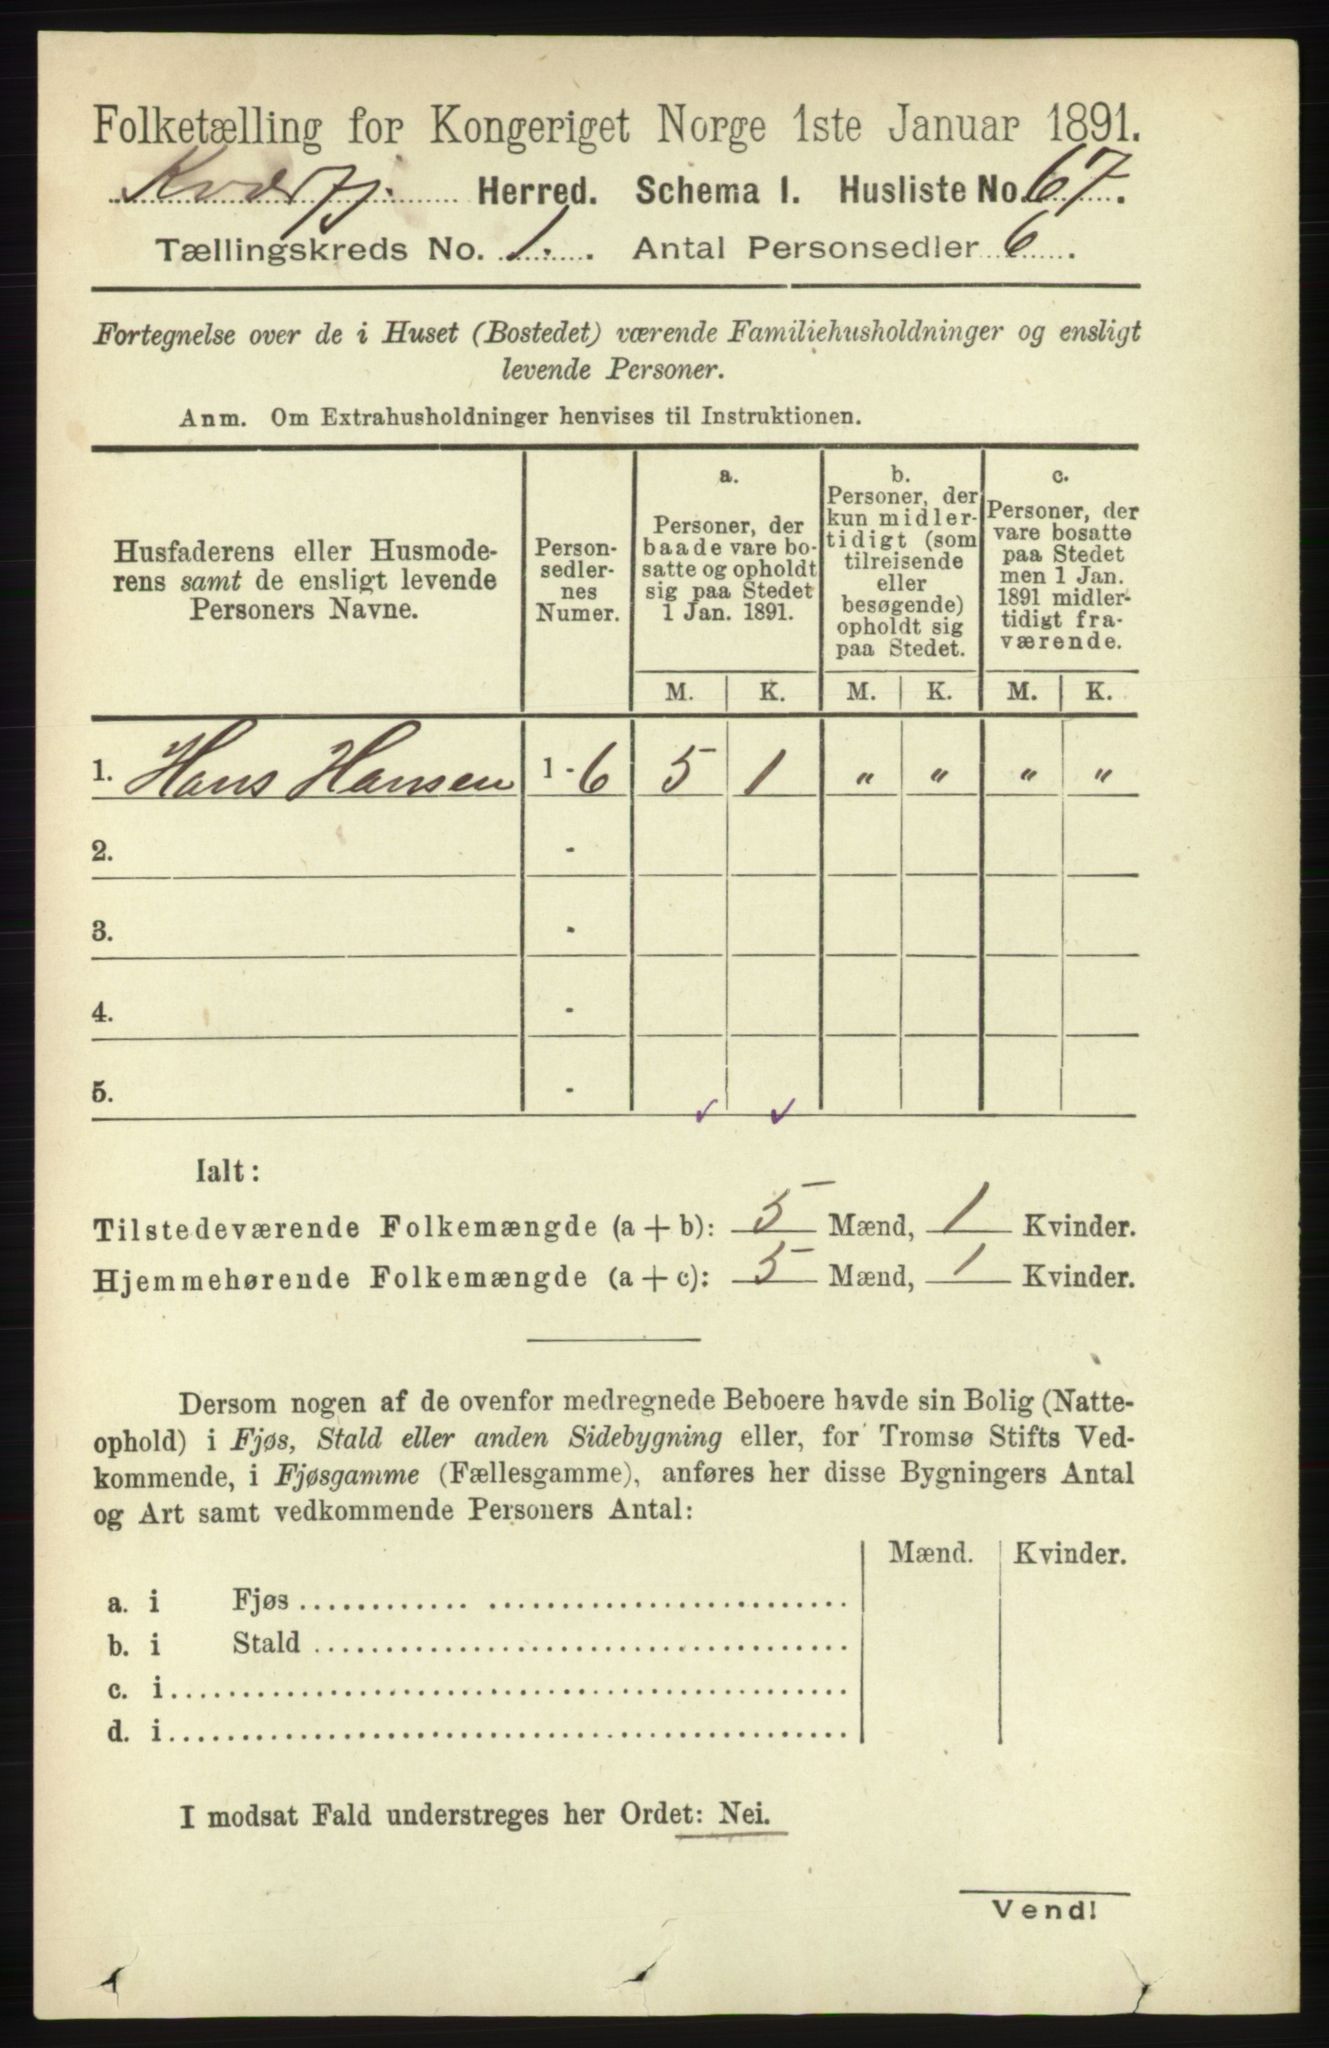 Folketælling for Kongeriget Norge 1ste Januar 1891.
Kværfj. Herred. Schema I. Husliste No. 67.
Tællingskreds No. 1. Antal Personsedler 6.
Fortegnelse over de i Huset (Bostedet) værende Familiehusholdninger og ensligt
levende Personer.
Anm. Om Extrahusholdninger henvises til Instruktionen.
Husfaderens eller Husmode-
rens samt de ensligt levende
Personers Navne.
Person-
sedler-
nes
Numer.
a.
Personer, der
baade vare bo-
satte og opholdt
sig paa Stedet
1 Jan. 1891.
b.
Personer, der
kun midler-
tidigt (som
tilreisende
eller
besøgende)
opholdt sig
paa Stedet.
c.
Personer, der
vare bosatte
paa Stedet
men 1 Jan.
1891 midler-
tidigt fra-
værende.
M. K. M. K. M. K.
1. Hans Hansen 1 - 6 5 1 " " " "
2. -
3. -
4. -
5. -
Ialt:
Tilstedeværende Folkemængde (a + b): 5 Mænd, 1 Kvinder.
Hjemmehørende Folkemængde (a + c): 5 Mænd, 1 Kvinder.
Dersom nogen af de ovenfor medregnede Beboere havde sin Bolig (Natte-
ophold) i Fjøs, Stald eller anden Sidebygning eller, for Tromsø Stifts Ved-
kommende, i Fjøsgamme (Fællesgamme), anføres her disse Bygningers Antal
og Art samt vedkommende Personers Antal:
Mænd. Kvinder.
a. i Fjøs
b. i Stald
c. i
d. i
I modsat Fald understreges her Ordet: Nei.
Vend!